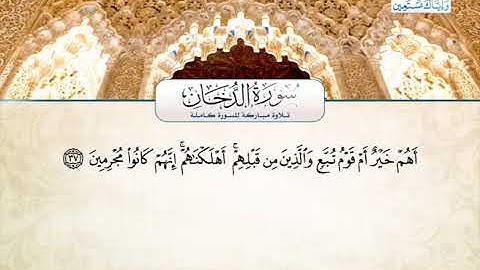 وَإِيَّاكَ نَسْتَعِينُ
سُورَةُ الدُّخَانِ
تلاوة مباركة للسورة كاملة
أَهُمْ خَيْرٌ أَمْ قَوْمُ تُبَّعٍ وَٱلَّذِينَ مِن قَبْلِهِمْ ۚ أَهْلَكْنَٰهُمْ ۖ إِنَّهُمْ كَانُوا۟ مُجْرِمِينَ ٣٧